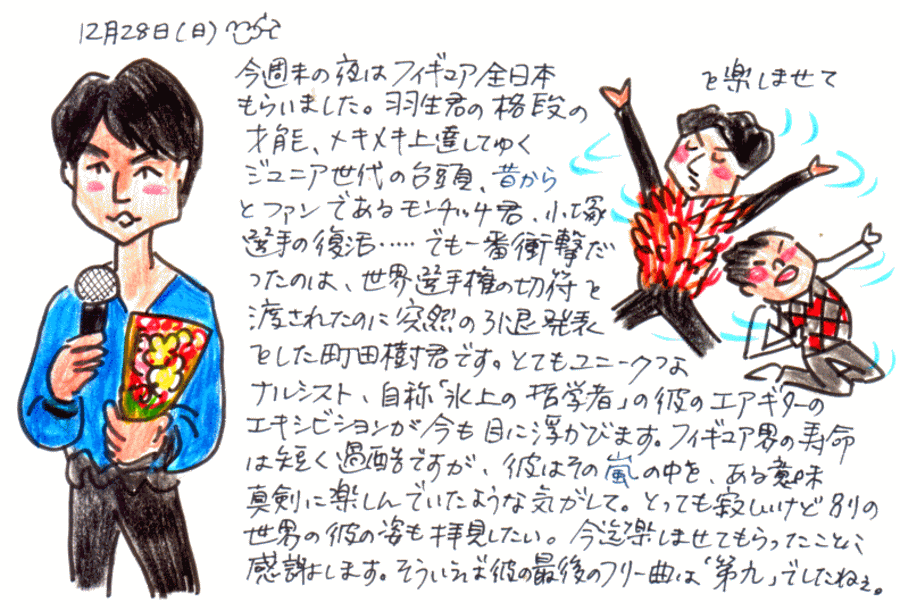 12月28日(日)
今週末の夜はフィギュア全日本を楽しませて
もらいました。羽生君の格段の
才能、メキメキ上達してゆく
ジュニア世代の台頭、昔から
とファンであるモンチッチ君、小塚
選手の復活…… でも一番衝撃だ
ったのは、世界選手権の切符を
渡されたのに突然の引退発表
をした町田樹君です。とてもユニークな
ナルシスト、自称「氷上の哲学者」の彼のエアギターの
エキシビションが今も目に浮かびます。フィギュア男の寿命
は短く過酷ですが、彼はその嵐の中を、ある意味
真剣に楽しんでいたような気がして。とっても寂しいけど別の
世界の彼の姿も拝見したい。今迄楽しませてもらったことに
感謝します。そういえば彼の最後のフリー曲は「第九」でしたねぇ。